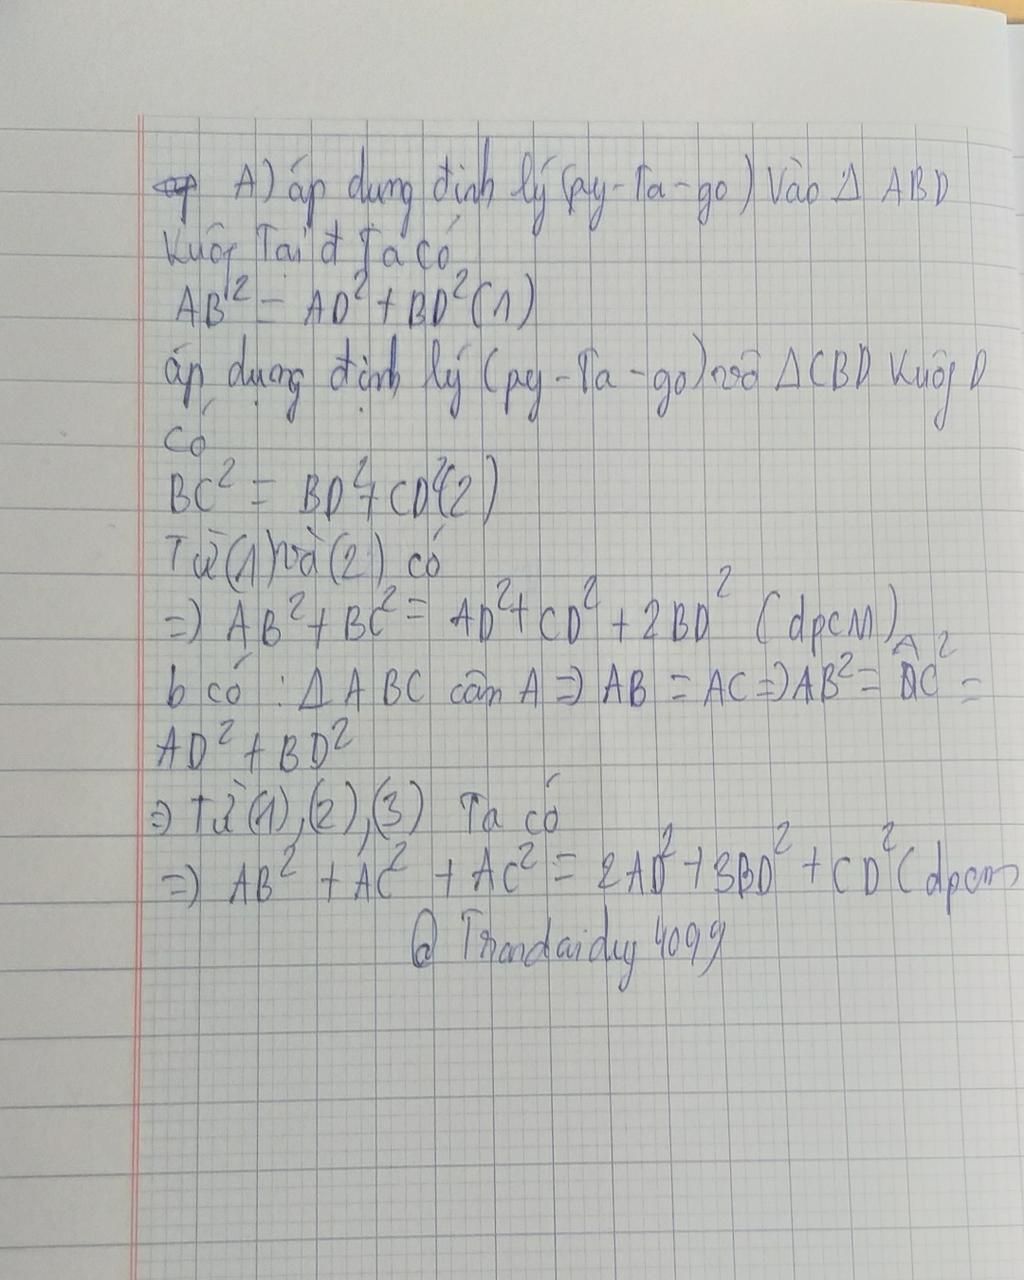 A) áp dung định lý (py-Ta-go) Vào Δ ABD
Kuôg Tại đ Ta có
AB² = AD² + BD² (1)
áp dụng định lý (py-Ta-go) và Δ CBD Kuôg D
có
BC² = BD² + CD² (2)
Từ (1) và (2) có
=) AB² + BC² = AD² + CD² + 2BD² (dpcm)
b có : Δ ABC cân A => AB = AC => AB² = AC² =
AD² + BD²
=> Từ (1), (2), (3) Ta có
=) AB² + AC² + AC² = 2AD² + 3BD² + CD² (dpcm
@ Trandaiduy 4099